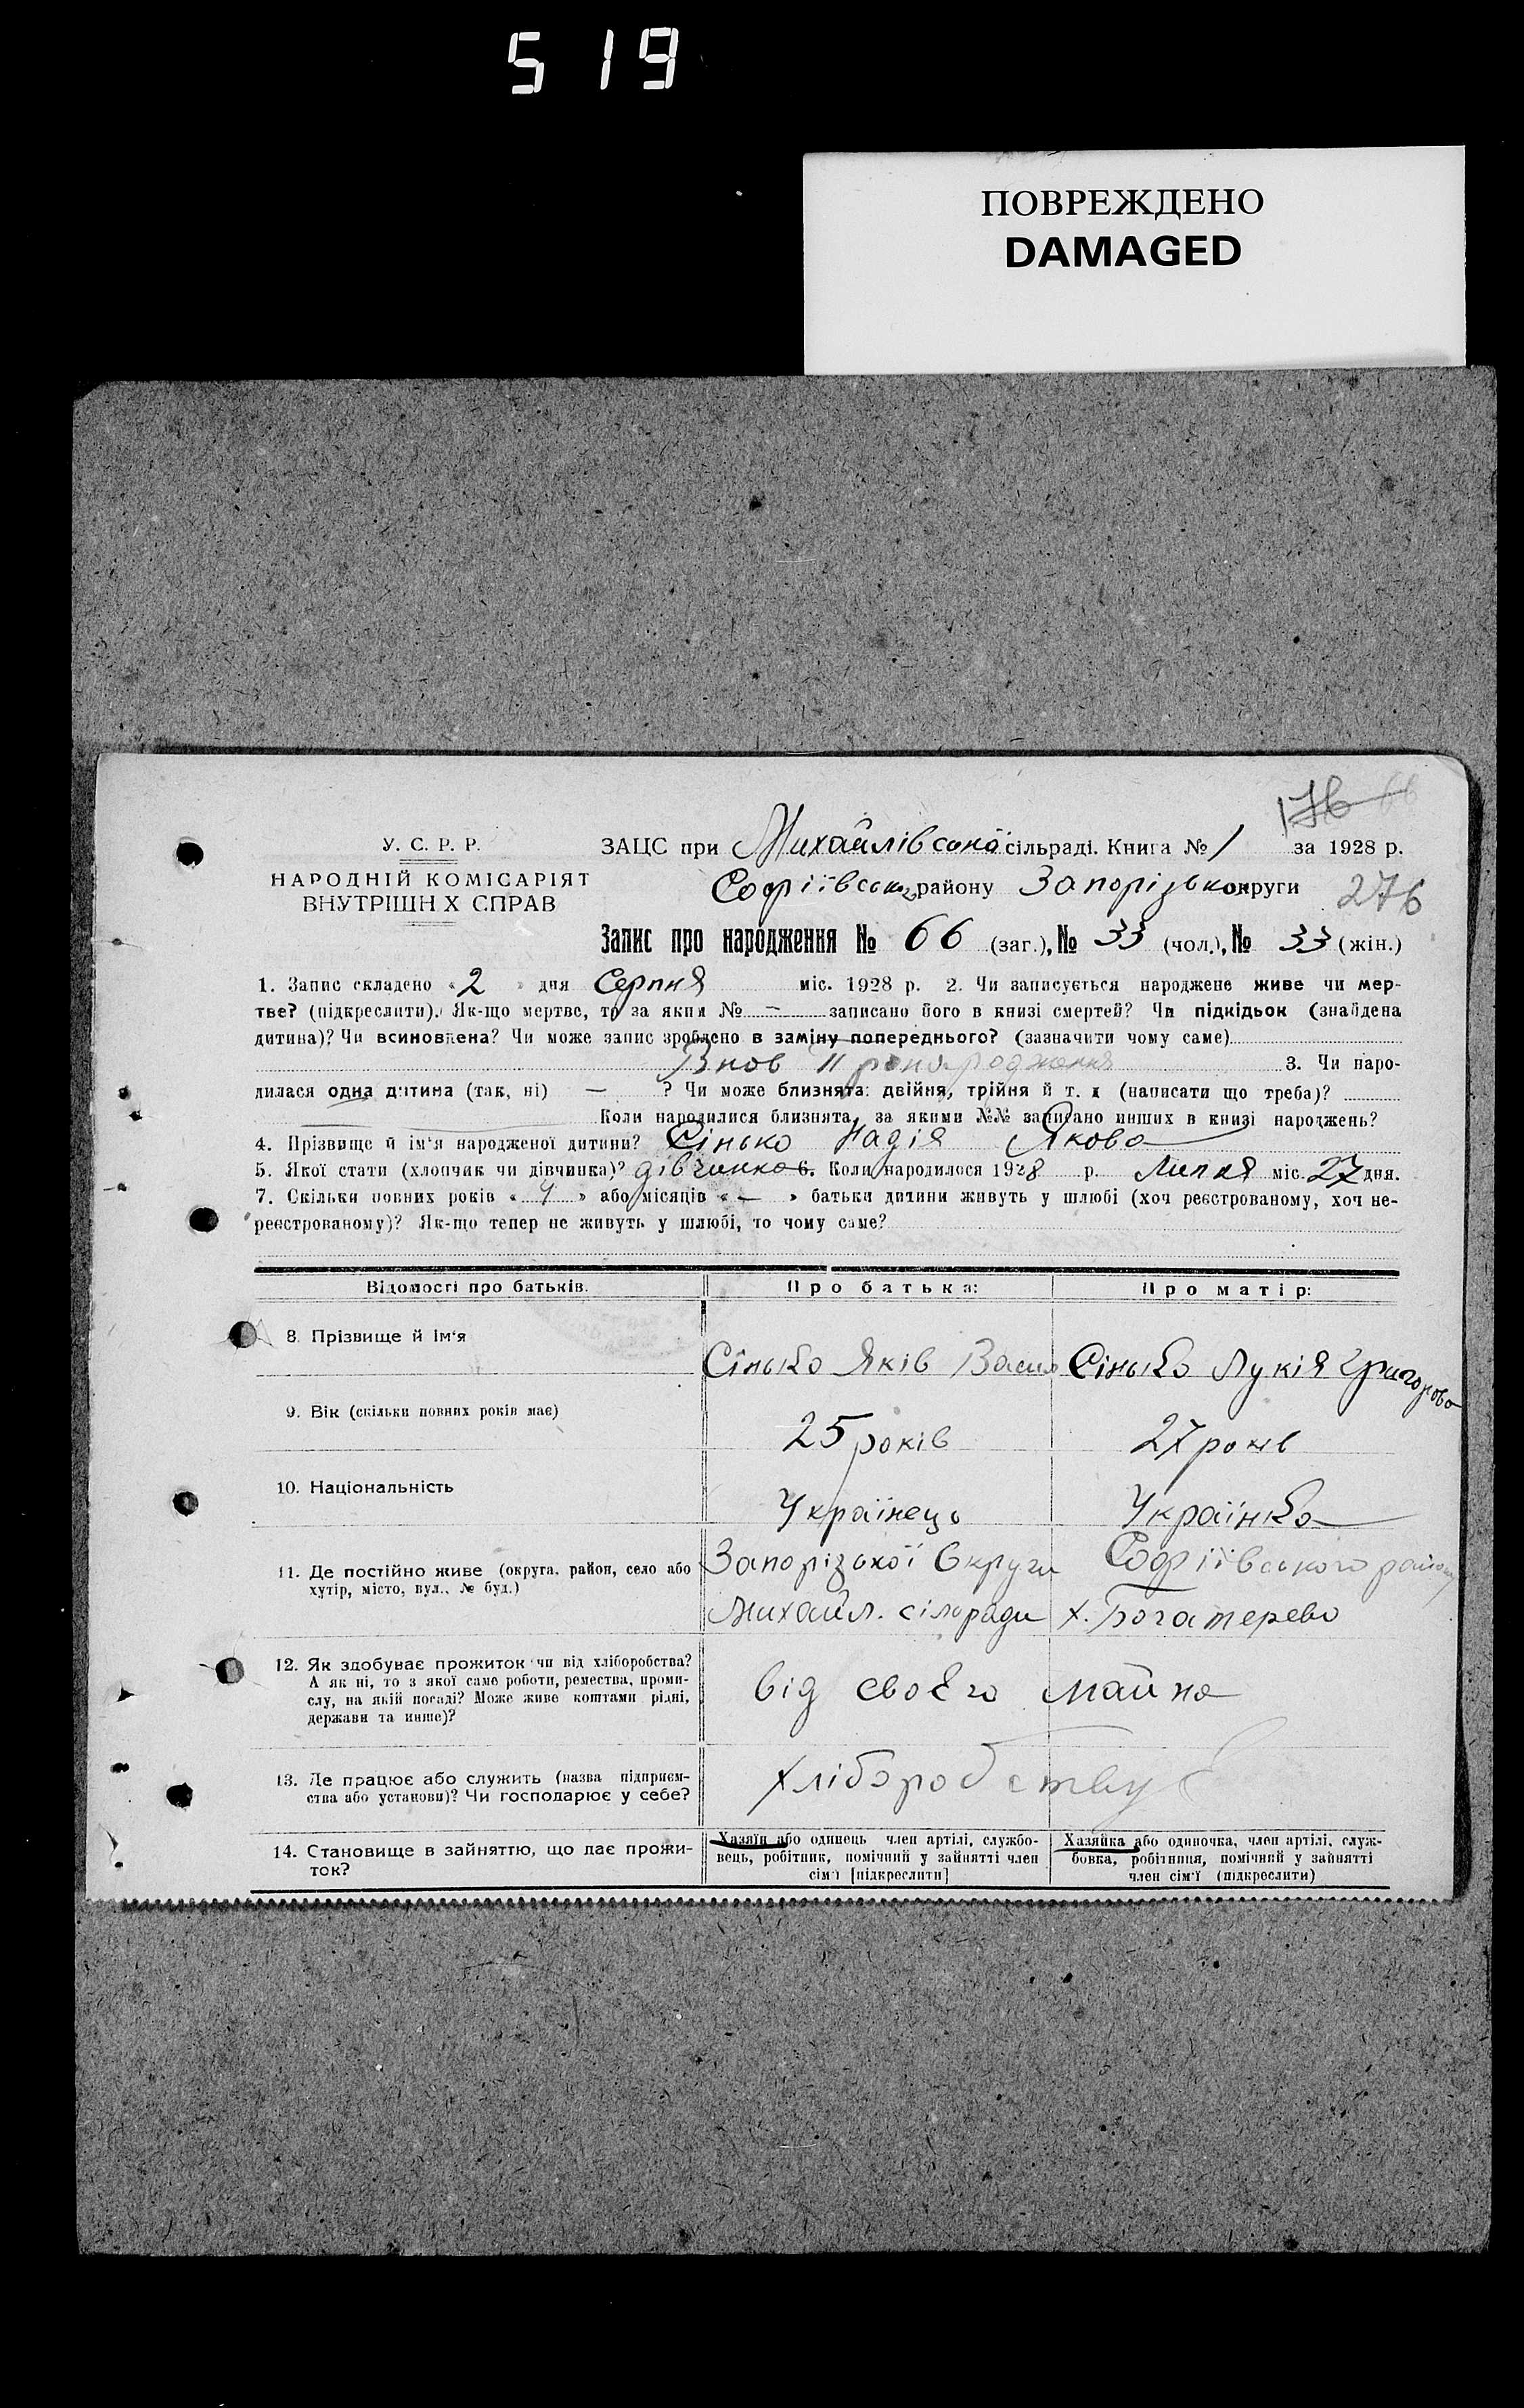 519
ПОВРЕЖДЕНО
DAMAGED
176 66
У. С. Р. Р.
НАРОДНІЙ КОМІСАРІЯТ
ВНУТРІШН Х СПРАВ
ЗАЦС при Михайлівської сільраді. Книга № 1 за 1928 р.
Софіївськ району Запорізької округи 276
Запис про народження № 66 (заг.), № 33 (чол.), № 33 (жін.)
1. Запис складено «2» дня Серпня міс. 1928 р. 2. Чи записується народжене живе чи мер-
тве? (підкреслити). Як-що мертве, то за яким № — записано його в книзі смертей? Чи підкідьок (знайдена
дитина)? Чи всиновлена? Чи може запис зроблено в заміну попереднього? (зазначити чому саме)
Внов 3. Чи наро-
дилася одна дитина (так, ні) — ? Чи може близнята: двійня, трійня й т. д (написати що треба)?
Коли народилися близнята, за якими №№ записано инших в книзі народжень?
4. Прізвище й ім'я народженої дитини? Сінько Надія Якова
5. Якої стати (хлопчик чи дівчинка)? дівчинка 6. Коли народилося 1928 р. Липня міс. 27 дня.
7. Скільки повних років « 4 » або місяців « — » батьки дитини живуть у шлюбі (хоч реєстрованому, хоч не-
реєстрованому)? Як-що тепер не живуть у шлюбі, то чому саме?
Відомості про батьків. Про батька: Про матір:
8. Прізвище й ім'я Сінько Яків Васил Сінько Лукія Григорова
9. Вік (скільки повних років має) 25 років 27 років
10. Національність Українець Українка
11. Де постійно живе (округа, район, село або Запорізької Округи Софіївського району
хутір, місто, вул., № буд.) Михайл. сільради х. Богатерево
12. Як здобуває прожиток чи від хліборобства?
А як ні, то з якої саме роботи, ремества, проми-
слу, на якій посаді? Може живе коштами рідні, від своєго майна
держави та инше)?
13. Де працює або служить (назва підприєм- хліборобствує
ства або установи)? Чи господарює у себе?
14. Становище в зайняттю, що дає прожи-
ток?
Хазяїн або одинець член артілі, службо-
вець, робітник, помічний у зайнятті член
сім'ї [підкреслити]
Хазяйка або одиночка, член артілі, служ-
бовка, робітниця, помічний у зайнятті
член сім'ї (підкреслити)